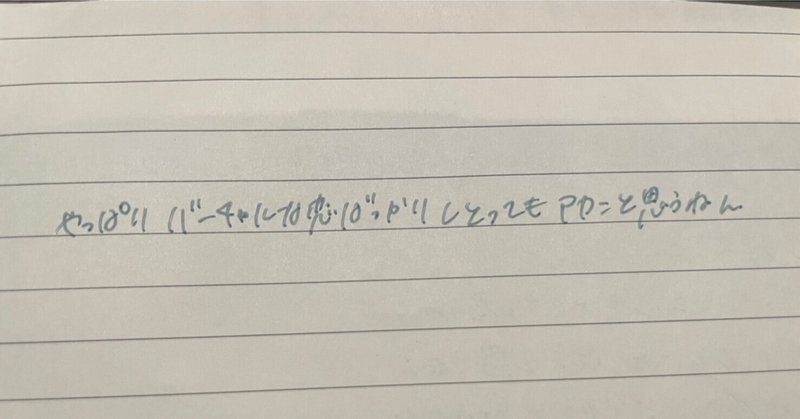 やっぱり バーチャルな恋ばっかり しとっても アカンと思うねん